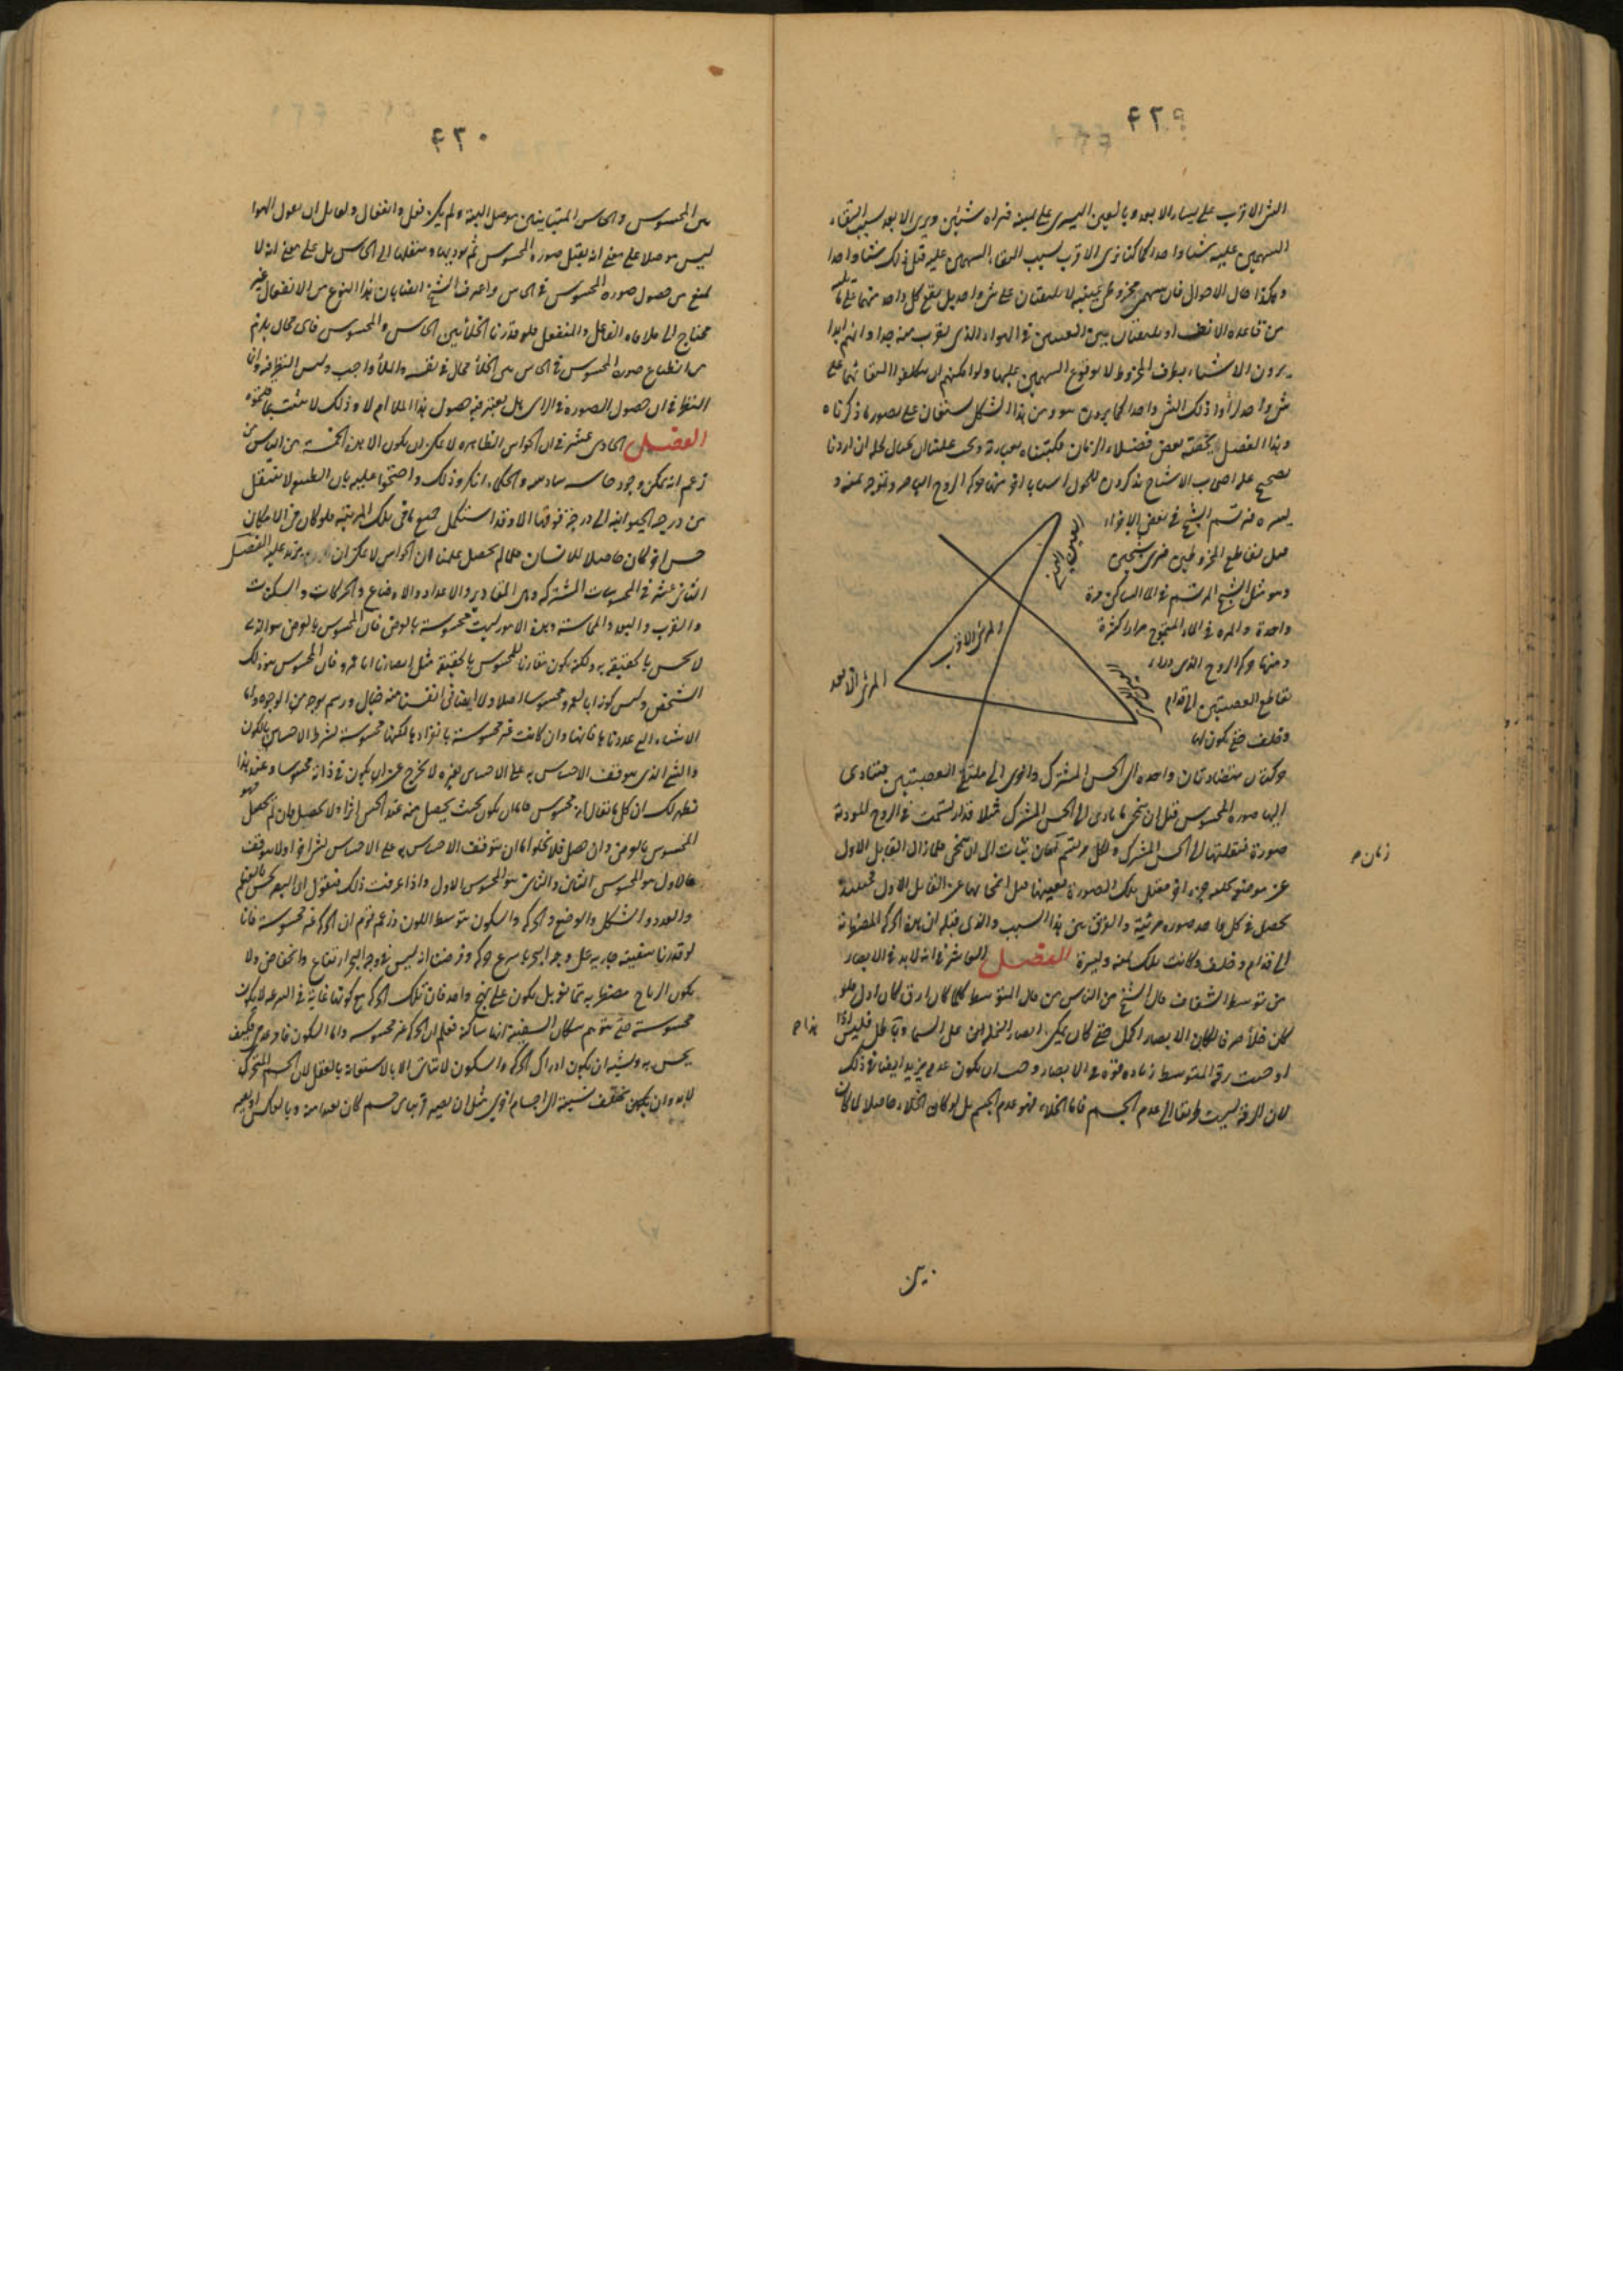 ۴۲۹
الشی الاقرب علی یسار الابعد وبالعین الیسری علی یمینه فنراه شیئین ویری الابعد بسبب التقاء
السهمین علیه شیئا واحدا کما کنا نری الاقرب بسبب التقاء السهمین علیه قبل ذلک شیئا واحدا
وهکذا حال الاحوال فان سهمی مخروطی عینیه لا یلتقیان علی شی واحد بل یقع کل واحد منهما علی
من قاعدة الانف او یلتقیان بین العینین فی الهواء الذی یقرب منه جدا وانهم ابدا
یرون الاشیاء بطرف المخروط لا بوقوع السهمین علیها ولو امکنهم ان یتکلفوا التقائهما علی
شی واحد لرأوا ذلک الشی واحدا کما یرون سو ومن هذا الشکل یستعان علی تصور ما ذکرناه
وهذا الفصل حققه بعض فضلاء الزمان فکتبناه بعبارته ویجب علینا ان نحتال لحله ان اردنا
تصحیح علی اصحاب الاشباح یذکرون للحول اسبابا اخر منها حرکة الروح الباصر وتموجه یمنة و
یسرة فیرتسم الشبح فی بعض الاجزاء
قبل تقاطع المخروطین فیری شبحین
وهو مثل الشبح المرتسم فی الماء الساکن مرة
واحدة والمرتسم فی الماء المتموج مرارا کثیرة
ومنها حرکة الروح الذی وراء
تقاطع العصبتین الی قدام
وخلف حتی یکون لها
العین الیمنی
المرئی الاقرب
المرئی الابعد
العین الیسری
حرکتان متضادتان واحدة الی الحس المشترک واخری الی ملتقی العصبتین فیتادی
الیها صورة المحسوس قبل ان ینمحی ما تادی الی الحس المشترک مثلا اذا ارتسمت فی الروح المودیة
صورة فنقلتها الی الحس المشترک ولکل مرتسم زمان ثبات الی ان ینمحی فلما زال القابل الاول
عن موضعه خلفه جزء اخر فقبل تلک الصورة بعینها قبل انمحائها عن القابل الاول فحینئذ
تحصل فی کل واحد صورة مرئیة والفرق بین هذا السبب والذی قبله ان هذه الحرکة المضطربة
الی قدام وخلف وکانت تلک یمنة ویسرة الفصل العاشر فی انه لابد فی الابصار
من توسط الشفاف قال الشیخ من الناس من قال المتوسط کلما کان ارق کان اولی فلو
کان خلأ صرفا لکان الابصار اکمل حتی کان یمکن ابصار النملة علی السماء وهذا باطل فلیس اذا
اوجبت رقة المتوسط زیادة قوة فی الابصار وجب ان یکون عدمه یزید ایضا فی ذلک
لان الرقة لیست طریقا الی عدم الجسم فاما الخلاء فهو عدم الجسم بل لو کان الخلاء حاصلا لما کان
زمان ص
هذا ص
بین
۴۳۰
بین المحسوس والحاس المتباینین موصل البتة ولم یکن فعل وانفعال ولقائل ان یقول الهواء
لیس موصلا علی معنی انه یقبل صورة المحسوس ثم یودیها وینقلها الی الحاس بل علی معنی انه لا
یمنع من حصول صورة المحسوس فی الحاس واعترف الشیخ ایضا بان هذا النوع من الانفعال غیر
محتاج الی ملاقاة الفاعل والمنفعل فلو قدرنا الخلأ بین الحاس والمحسوس فای محال یلزم
من انطباع صورة المحسوس فی الحاس بلی الخلأ محال فی نفسه والملأ واجب ولیس النظر فیه وانما
النظر فی ان حصول الصورة فی الرای هل یعتبر فیه حصول هذا الملأ ام لا وذلک لا یثبت بما ذکروه
الفصل الحادی عشر فی ان الحواس الظاهرة لا یمکن ان یکون الا هذه الخمسة من الناس من
زعم انه یمکن وجود حاسة سادسة والحکماء انکروا ذلک واحتجوا علیه بان الطبیعة لا تنتقل
من درجة الحیوانیة الی درجة فوقها الا وقد استکمل جمیع ما فی تلک المرتبة فلو کان فی الامکان
حس اخر لکان حاصلا للانسان فلما لم یحصل علمنا ان الحواس لا یمکن ان یزید علیه الفصل
الثانی عشر فی المحسوسات المشترکة وهی المقادیر والاعداد والاوضاع والحرکات والسکنات
والقرب والبعد والمماسة وهذه الامور لیست محسوسة بالعرض فان المحسوس بالعرض هو الذی
لا یحس بالحقیقة ولکنه یکون مقارنا للمحسوس بالحقیقة مثل ابصارنا ابا عمرو فان المحسوس هو ذلک
الشخص ولیس کونه ابا عمرو محسوسا اصلا ولا ایضا فی انفسنا منه خیال ورسم بوجه من الوجوه واما
الاشیاء التی عددناها فانها وان کانت غیر محسوسة بانفرادها لکنها محسوسة بشرط الاحساس باللون
والشی الذی یتوقف الاحساس به علی الاحساس بغیره لا یخرج عن ان یکون فی ذاته محسوسا وعند هذا
نظهر لک ان کل ما یقال انه محسوس فاما ان یکون بحیث یحصل منه عند الحس اثر اولا یحصل فان لم یحصل فهو
المحسوس بالعرض وان حصل فلا یخلو اما ان یتوقف الاحساس به علی الاحساس بشی اخر اولا یتوقف
فالاول هو المحسوس الثانی والثانی هو المحسوس الاول واذا عرفت ذلک فنقول ان البصر یحس بالعظم
والعدد والشکل والوضع والحرکة والسکون بتوسط اللون وزعم قوم ان الحرکة غیر محسوسة فانا
لو قدرنا سفینة جاریة علی وجه البحر باسرع حرکة وفرضنا انه لیس فی وجه البحر ارتفاع وانخفاض ولا
یکون الریاح مضطربة بل یکون علی نهج واحد فان تلک الحرکة مع کونها غایة فی السرعة لا یکون
محسوسة حتی یتوهم سکان السفینة انها ساکنة فعلم ان الحرکة غیر محسوسة واما السکون فامر عدمی فکیف
یحس به ویشبه ان یکون ادراک الحرکة والسکون لا یتاتی الا بالاستعانة بالعقل لان الجسم المتحرک
لابد وان یکون یختلف نسبته الی اجسام اخری مثل ان یصیر قریبا من جسم کان بعیدا منه وبالعکس